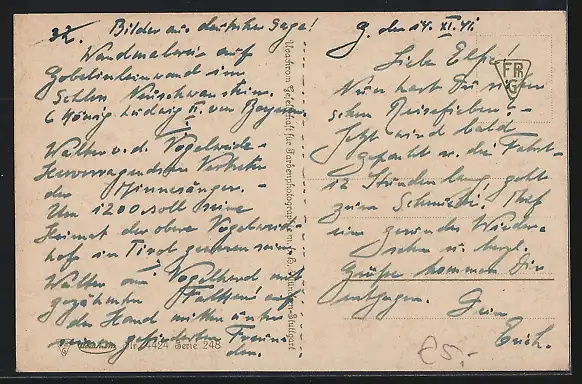 32. Bilder aus deutscher Sage!
Wandmalerei auf
Gobelinleinwand im
Schloss Neuschwanstein.
König Ludwig II. von Bayern
Walter v. d. Vogelweide -
Hervorragendsten Vertreter
der Minnesänger. -
Um 1200 soll seine
Heimat der obere Vogelweid-
hof in Tirol gewesen sein
Walter am Vogelherd mit
gezähmten Falken auf
der Hand mitten unter
seinen gefiederten Freun-
den.
Nr. 4424 Serie 248
Uvachrom Gesellschaft für Farbenphotographie m. b. H. München-Stuttgart
G. den 14. XI. 41.
Liebe Elfie!
FPhG
Nun hast Du
schon Reisefieber! -
Jetzt wird bald
gepackt u. die Fahrt -
12 Stunden lang geht
zum Schmucki! Auf
ein gesundes Wieder-
sehen u. herzl.
Grüße kommen Dir
entgegen. Dein
Erich.